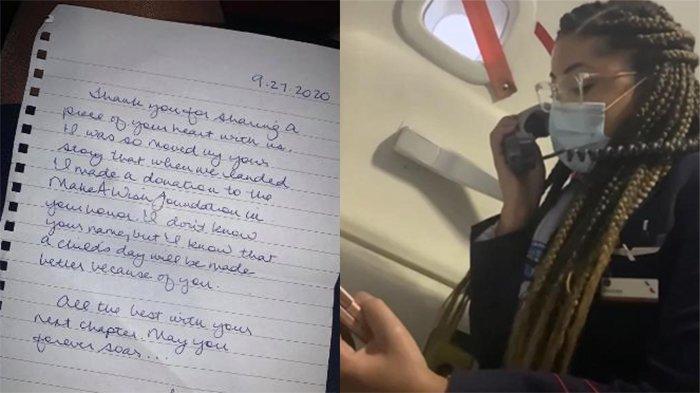 9.27.2020
Thank you for sharing a
piece of your heart with us.
I was so moved by your
story that when we landed
I made a donation to the
Make A Wish foundation in
your honor. I don't know
your name, but I know that
a child's day will be made
better because of you.
All the best with your
next chapter. May you
forever soar...